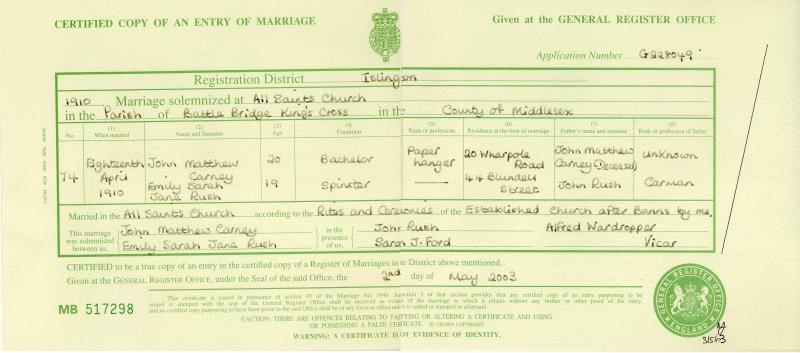 CERTIFIED COPY OF AN ENTRY OF MARRIAGE
Given at the GENERAL REGISTER OFFICE
Application Number G228049
Registration District Islington
1910 Marriage solemnized at All Saints Church
in the Parish of Battle Bridge King's Cross in the County of Middlesex
No. (1) When married (2) Name and Surname (3) Age (4) Condition (5) Rank or profession (6) Residence at the time of marriage (7) Father's name and surname (8) Rank or profession of father
74 Eighteenth April 1910
John Matthew Carney 20 Bachelor Paper hanger 20 Wharpole Road John Matthew Carney (Deceased) Unknown
Emily Sarah Jane Rush 19 Spinster —— 44 Blundell Street John Rush Carman
Married in the All Saints Church according to the Rites and Ceremonies of the Established Church after Banns by me,
This marriage was solemnized between us, John Matthew Carney Emily Sarah Jane Rush in the presence of us, John Rush Sarah J. Ford Alfred Wardropper Vicar
CERTIFIED to be a true copy of an entry in the certified copy of a Register of Marriages in the District above mentioned.
Given at the GENERAL REGISTER OFFICE, under the Seal of the said Office, the 2nd day of May 2003
MB 517298
This certificate is issued in pursuance of section 65 of the Marriage Act 1949. Section 3 of that section provides that any certified copy of an entry purporting to be
sealed or stamped with the seal of the General Register Office shall be received as evidence of the marriage to which it relates without any further or other proof of the entry,
and no certified copy purporting to have been given in the said Office shall be of any force or effect unless it is sealed or stamped as aforesaid.
CAUTION: THERE ARE OFFENCES RELATING TO FALSIFYING OR ALTERING A CERTIFICATE AND USING
OR POSSESSING A FALSE CERTIFICATE. © CROWN COPYRIGHT
WARNING: A CERTIFICATE IS NOT EVIDENCE OF IDENTITY.
GENERAL REGISTER OFFICE
ENGLAND
3/5/03